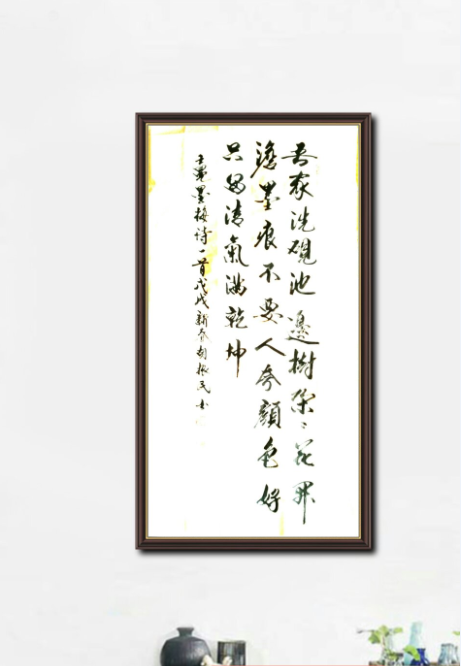 吾家洗硯池邊樹朵々花開
澹墨痕不要人夸顏色好
只留清氣滿乾坤
王冕墨梅诗一首戊戌新春胡振民书